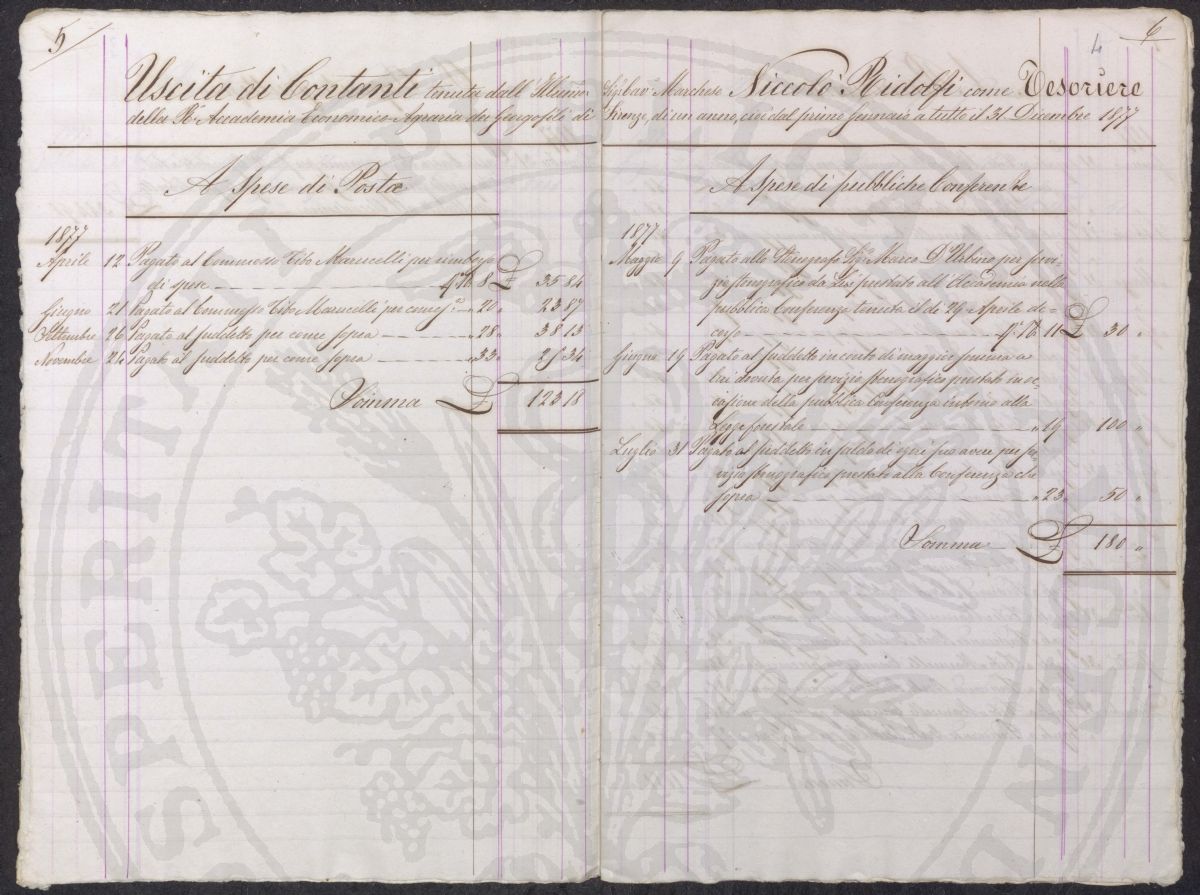 5
6
4
Uscita di Contanti tenuta dall' Illmo Sig. Cav. Marchese Niccolò Ridolfi come Tesoriere
della R. Accademia Economico-Agraria dei Georgofili di Firenze, di un anno, cioè dal primo Gennaio a tutto il 31 Dicembre 1877
A Spese di Posta
1877
Aprile 12 Pagato al Commesso Tito Marucelli per rimborso
di spese N. 8 £ 35 84
Giugno 21 Pagato al Commesso Tito Marucelli per come sa. " 20 " 23 87
Settembre 26 Pagato al suddetto per come sopra " 28 " 38 13
Novembre 24 Pagato al suddetto per come sopra " 33 " 25 34
Somma £ 123 18
A Spese di pubbliche Conferenze
1877
Maggio 9 Pagato allo Stenografo Sig. Marco D'Urbino per servi-
zio stenografico da Lui prestato all'Accademia nella
pubblica Conferenza tenuta il dì 29 Aprile de-
corso N. 11 £ 30 "
Giugno 19 Pagato al suddetto in conto di maggior somma a
lui dovuta per servizio stenografico prestato in oc-
casione della pubblica Conferenza intorno alla
Legge forestale " 19 100 "
Luglio 31 Pagato al suddetto in saldo di ogni suo avere per ser-
vizio stenografico prestato alla Conferenza che
sopra " 23 " 50 "
Somma £ 180 "
SPERITATI PUBLICAE